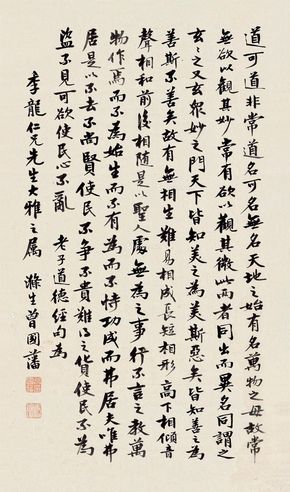 道可道非常道名可名無名天地之始有名萬物之母故常
無欲以觀其妙常有欲以觀其徼此兩者同出而異名同謂之
玄〻之又玄眾妙之門天下皆知美之為美斯惡矣皆知善之為
善斯不善矣故有無相生難易相成長短相形高下相傾音
聲相和前後相隨是以聖人處無為之事行不言之教萬
物作焉而不為始生而不有為而不恃功成而弗居夫唯弗
居是以不去不尚賢使民不爭不貴難得之貨使民不為
盜不見可欲使民心不亂 老子道德經句為
季龍仁兄先生大雅之屬 滌生曾國藩